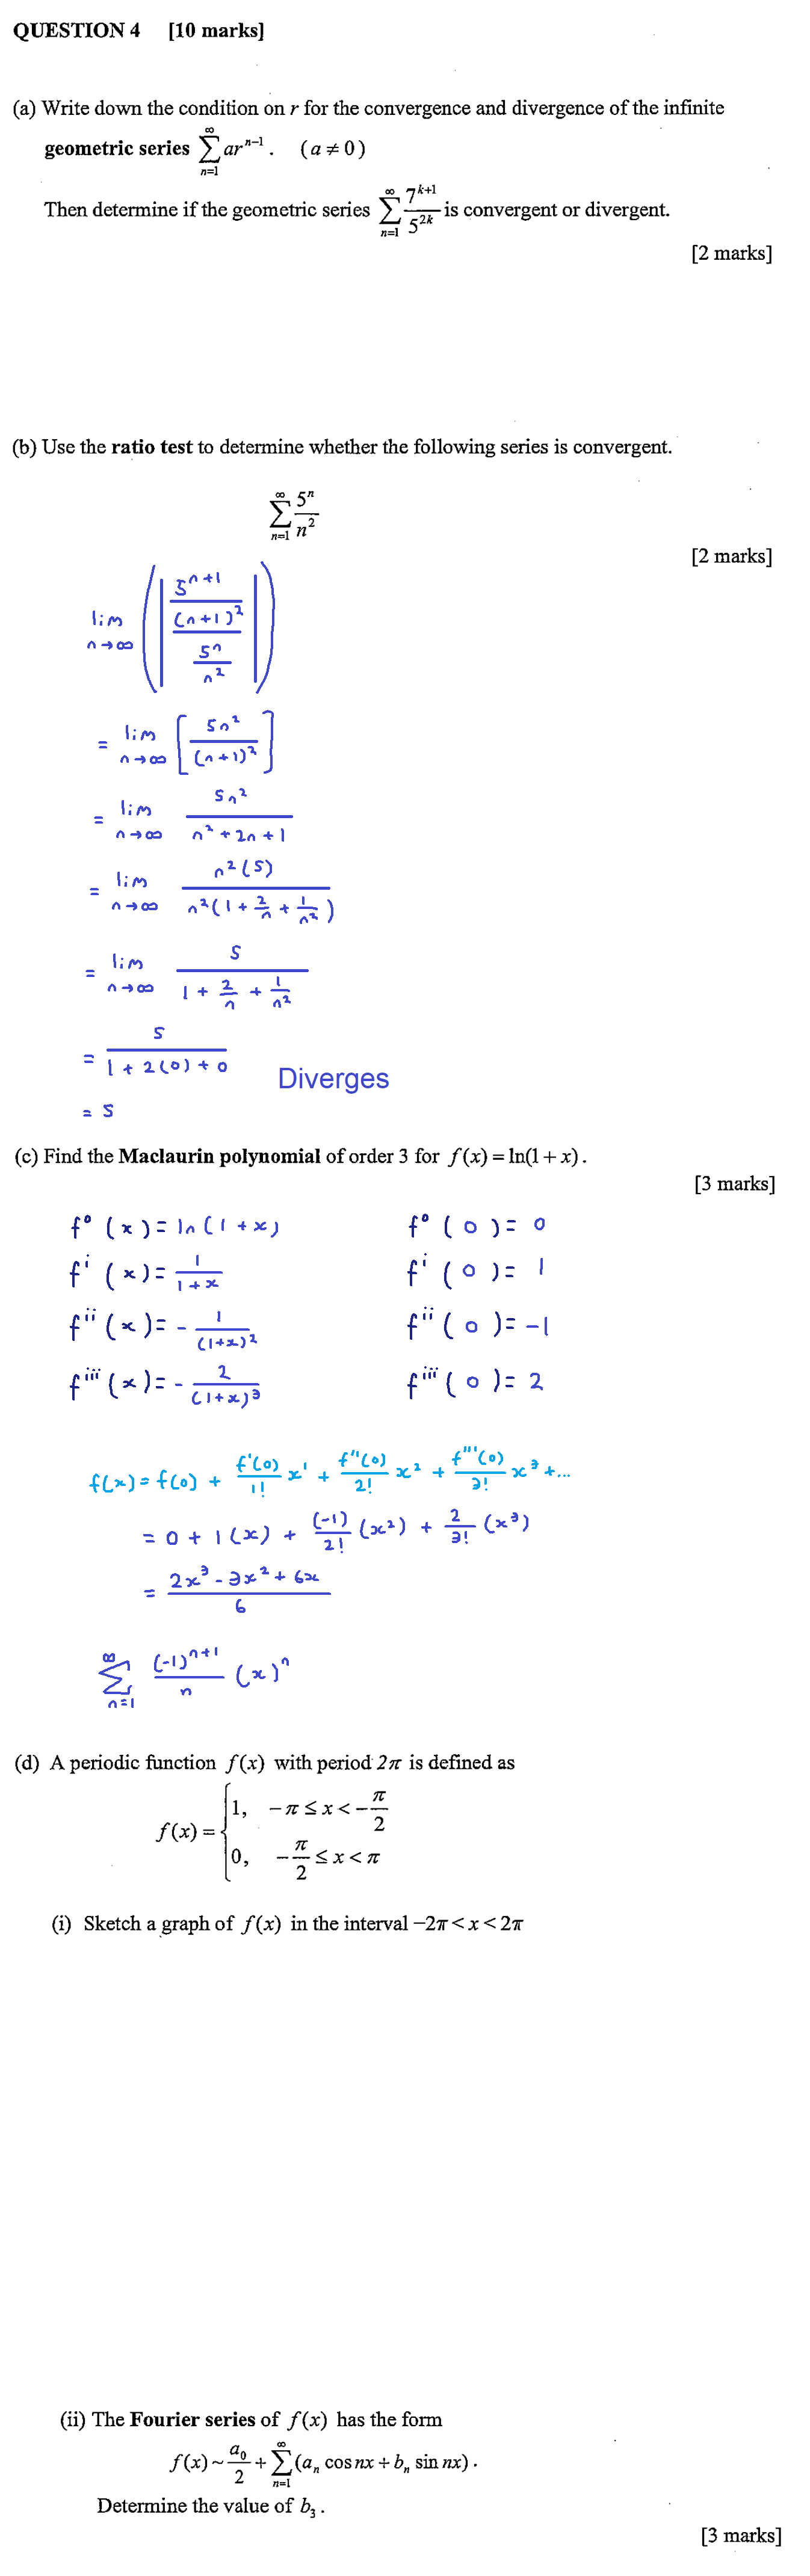 QUESTION 4 [10 marks]
(a) Write down the condition on r for the convergence and divergence of the infinite
geometric series ∑_{n=1}^{∞} ar^{n-1}. (a ≠ 0)
Then determine if the geometric series ∑_{n=1}^{∞} 7^{k+1}/5^{2k} is convergent or divergent.
[2 marks]
(b) Use the ratio test to determine whether the following series is convergent.
∑_{n=1}^{∞} 5^n/n^2
[2 marks]
lim_{n→∞} (| (5^{n+1}/(n+1)^2) / (5^n/n^2) |)
= lim_{n→∞} [5n^2/(n+1)^2]
= lim_{n→∞} 5n^2/(n^2+2n+1)
= lim_{n→∞} n^2(5)/(n^2(1+2/n+1/n^2))
= lim_{n→∞} 5/(1+2/n+1/n^2)
= 5/(1+2(0)+0)
Diverges
= 5
(c) Find the Maclaurin polynomial of order 3 for f(x) = ln(1+x).
[3 marks]
f^0(x) = ln(1+x) f^0(0) = 0
f^i(x) = 1/(1+x) f^i(0) = 1
f^ii(x) = -1/(1+x)^2 f^ii(0) = -1
f^iii(x) = -2/(1+x)^3 f^iii(0) = 2
f(x) = f(0) + f'(0)/1! x^1 + f''(0)/2! x^2 + f'''(0)/3! x^3 + ...
= 0 + 1(x) + (-1)/2! (x^2) + 2/3! (x^3)
= (2x^3 - 3x^2 + 6x)/6
∑_{n=1}^{∞} (-1)^{n+1}/n (x)^n
(d) A periodic function f(x) with period 2π is defined as
f(x) = { 1, -π ≤ x < -π/2
0, -π/2 ≤ x < π
(i) Sketch a graph of f(x) in the interval -2π < x < 2π
(ii) The Fourier series of f(x) has the form
f(x) ~ a_0/2 + ∑_{n=1}^{∞} (a_n cos nx + b_n sin nx).
Determine the value of b_3.
[3 marks]